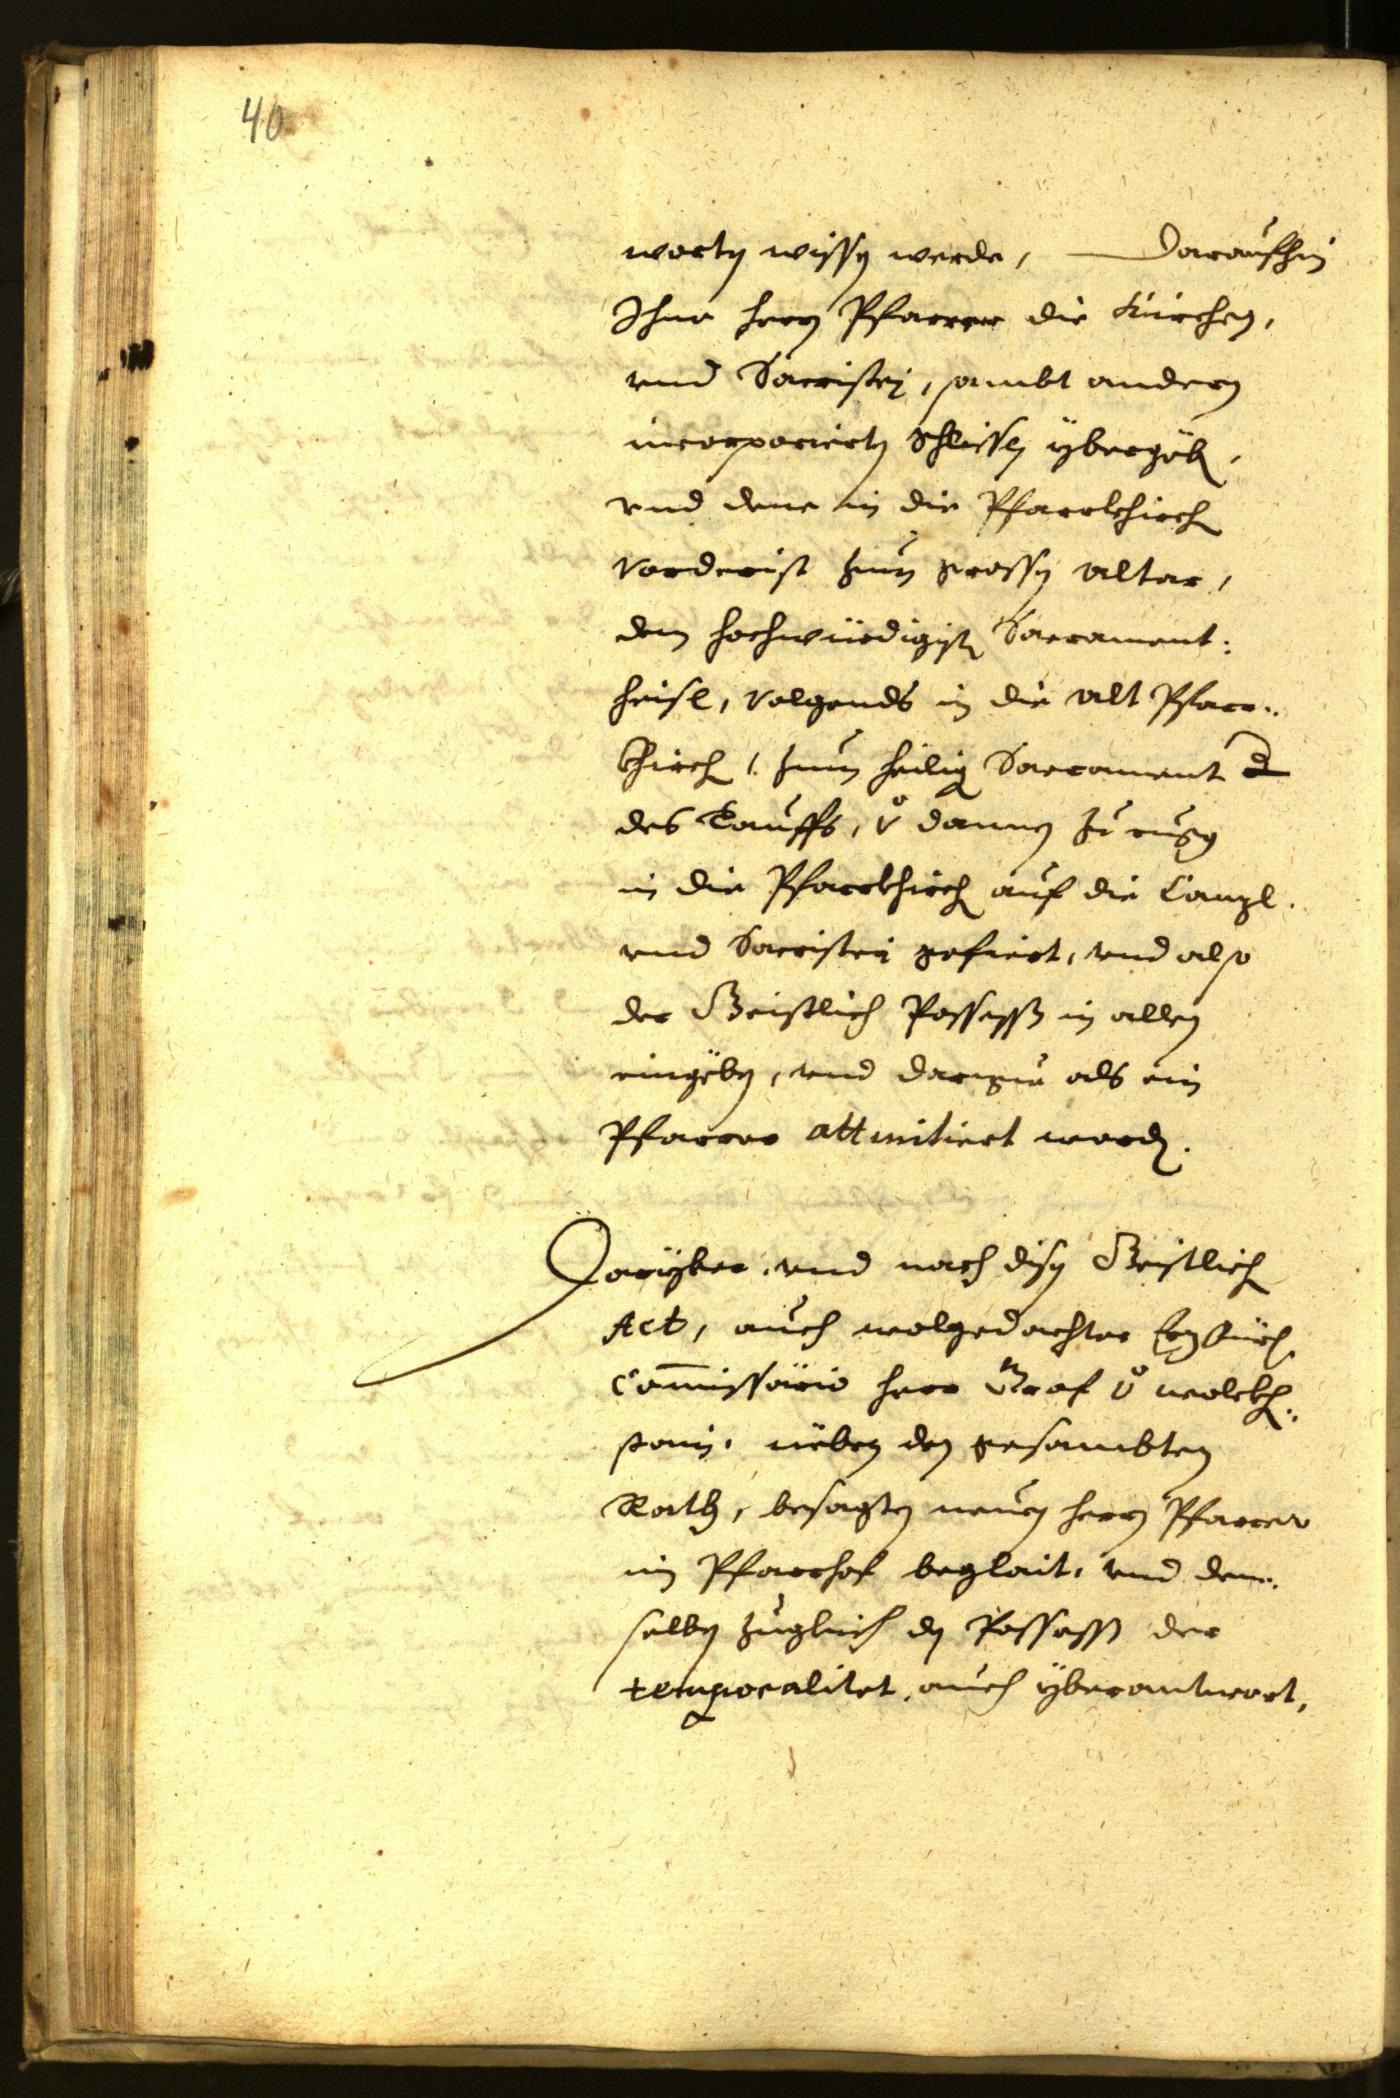 40
worten wissen werde, Daraufhin
Ihne herrn Pfarrer die Kürchen,
vnd Sacristej, sambt andern
incorporierten Schlissln yberg̈eben,
vnd dene in die Pfarrkhirchen
Vorderist zum grossen altar,
dem hochwürdigisten Sacrament:
heisl, Volgends in die alt Pfarr:
khirchen, zum heilig Sacrament
des Tauffs, v̊ dannen zu rugg
in die Pfarrkhirchen auf die Canzl.
vnd Sacristei gefiert, vnd also
der Geistlich Possessß in allen
eingëben, vnd darzue als ein
Pfarrer attmitiert worden.
Daryber vnd nach disen Geistlichen
Act, auch wolgedachter
Com̅issario herr Graf v̊ wolckhen:
stain, nëben den gesambten
Rath, besagten neuen herrn Pfarrer
in Pfarrhof beglait, vnd dem:
selben zugleich den Possessß der
temporalitet, auch yberantwort,